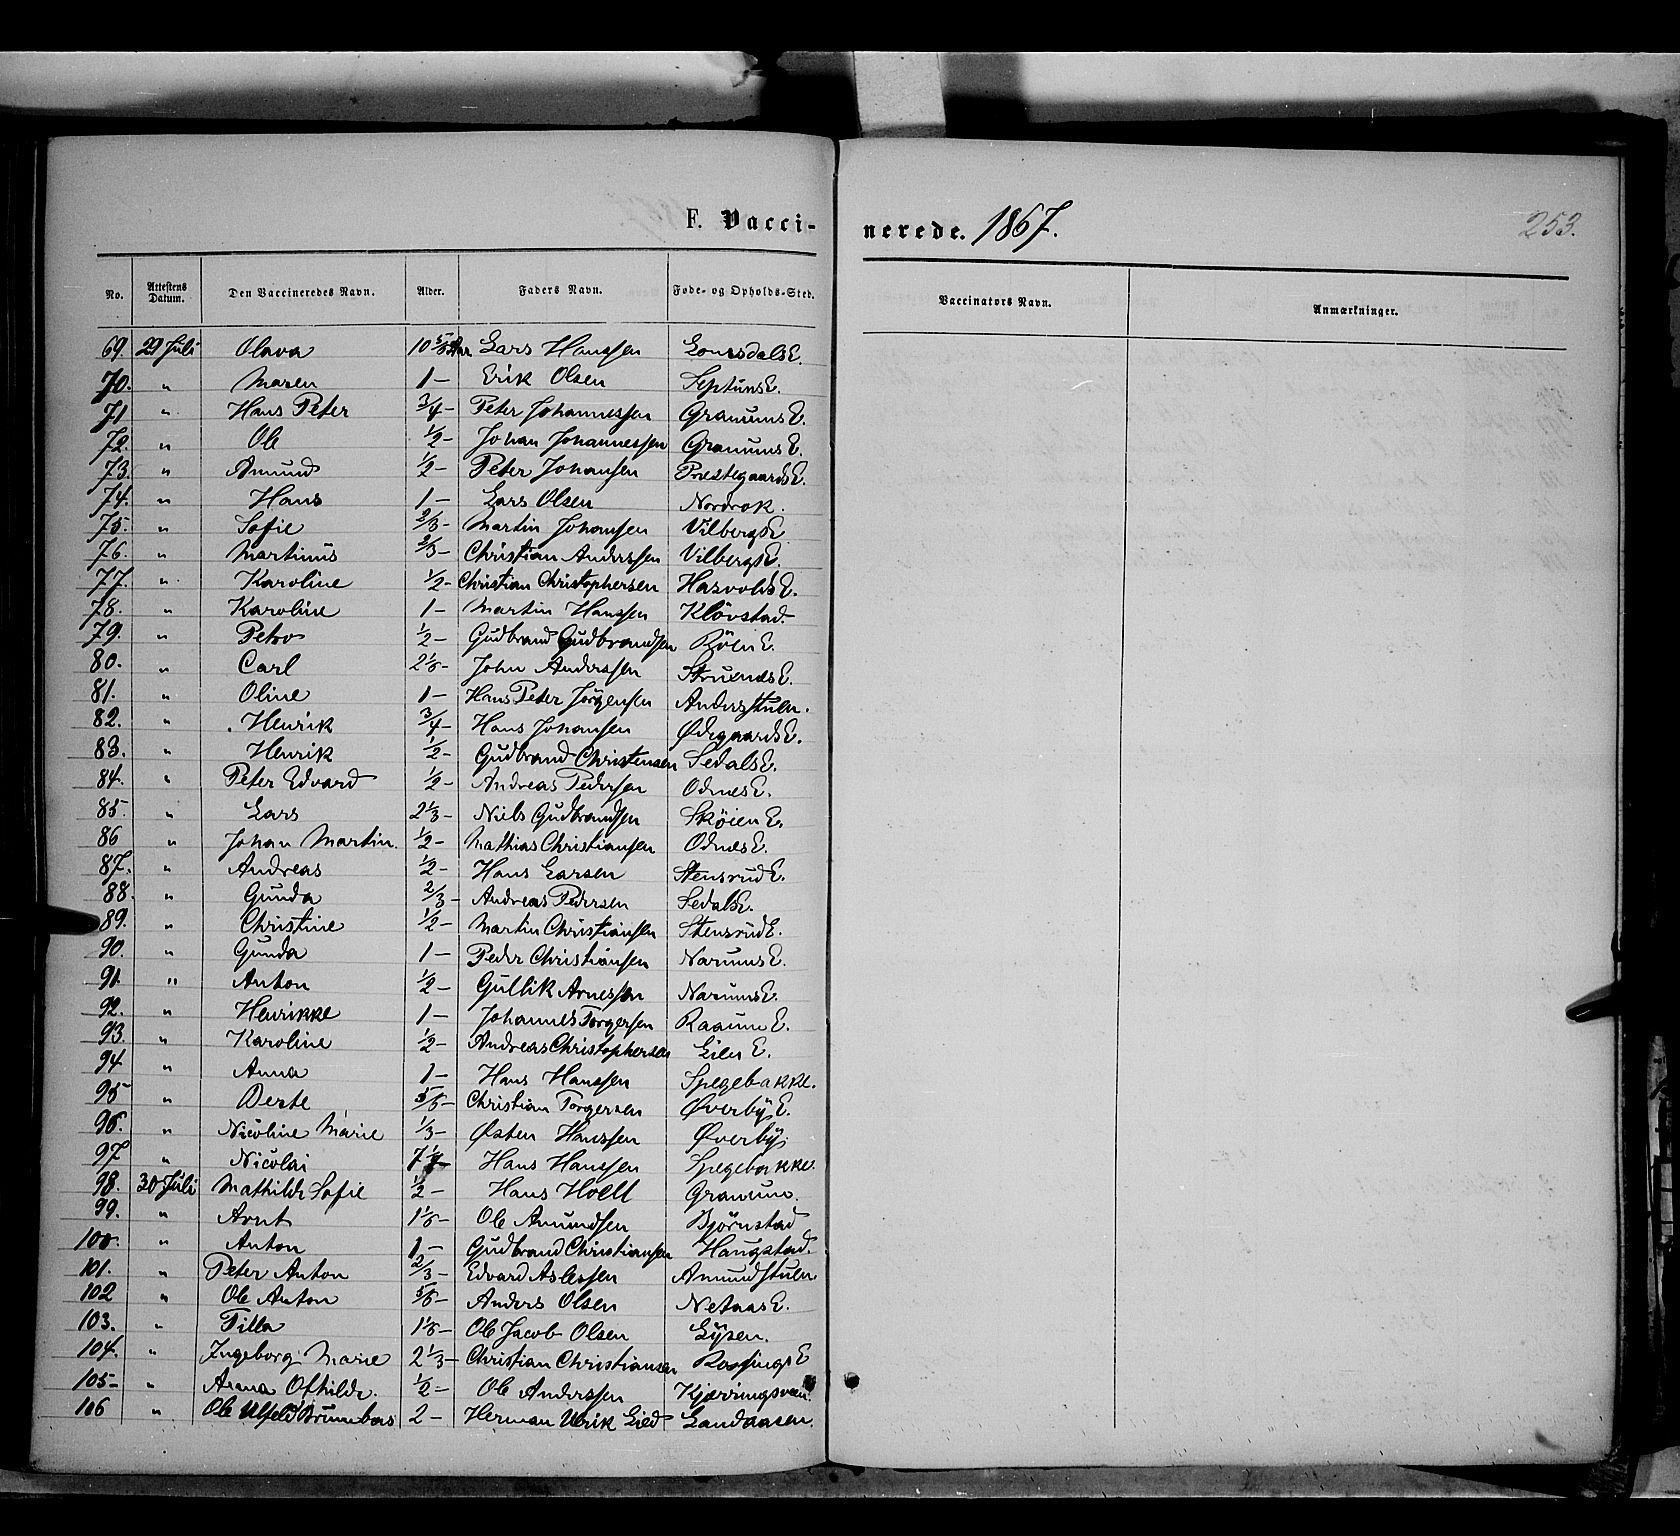 F. Vacci-
nerede. 1867.
253.
No. Attestens Datum. Den Vaccineredes Navn. Alder. Faders Navn. Føde- og Opholds-Sted. Vaccinators Navn. Anmærkninger.
69. 29 Juli Olava 10 5/6 Aar Lars Hanssen
70. " Maren 1 – Erik Olsen SeptunsE.
71 " Hans Peter 3/4 – Peter Johannessen GranumsE.
72. " Ole 1/2 – Johan Johannessen GranumsE.
73. " Amund 1/2 – Peter Johansen PrestegaardsE.
74. " Hans 1 – Lars Olsen Nordrok.
75. " Sofie 2/3 – Martin Johansen VilbergsE
76. " Martinus 2/3 – Christian Anderssen VilbergsE.
77. " Karoline 1/2 – Christian Christophersen HasvoldsE.
78. " Karoline 1 – Martin Hanssen Klövstad
79. " Petro 1/2 – Gudbrand Gudbrandsen RöinE.
80. " Carl 2 1/6 – John Anderssen
81. " Oline 1 – Hans Peter Jörgensen Andersstuen.
82. " Henrik 3/4 – Hans Johansen ØdegaardsE.
83. " Henrik 1/2 – Gudbrand Christensen SedalsE.
84. " Peter Edvard 1/2 – Andreas Pedersen OdnesE.
85. " Lars 2 1/3 – Niels Gudbrandsen SkøienE.
86 " Johan Martin. 1/2 – Mathias Christiansen OdnesE.
87. " Andreas 1/2 – Hans Larsen StensrudE.
88. " Gunda 2/3 – Andreas Pedersen SedalsE.
89. " Christine 1/2 – Martin Christiansen StensrudE.
90. " Gunda 1 – Peder Christiansen NarumsE.
91. " Anton 1/2 – Gullik Arnessen NarumsE.
92. " Henrikke 1 – Johannes Torgersen RaaumE.
93. " Karoline 1/2 – Andreas Christophersen LienE.
94 " Anna 1 – Hans Hanssen Spegebakke.
95 " Berte 5/6 – Christian Torgersen ØverbyE.
96. " Nicoline Marie 1/3 – Østen Hanssen Øverby
97 " Nicolai 7 Hans Hanssen Spegebakke
98. 30 Juli Mathilde Sofie 1/2 – Hans Hoell Granum.
99. " Arnt 1 1/6 – Ole Amundsen Bjørnstad
100. " Anton 1 – Gudbrand Christiansen Haugstad.
101. " Peter Anton 2/3 – Edvard Aslessen Amundstuen
102 " Ole Anton 5/6 – Anders Olsen
103. " Tilla 1 1/6 – Ole Jacob Olsen Lysen.
104. " Ingeborg Marie 2 1/3 – Christian Christiansen RossingsE
105 – " Anna Othilde. 1/2 – Ole Anderssen
106 " Ole Ulfeld 2 – Herman Ulrik Lied Landaasen.